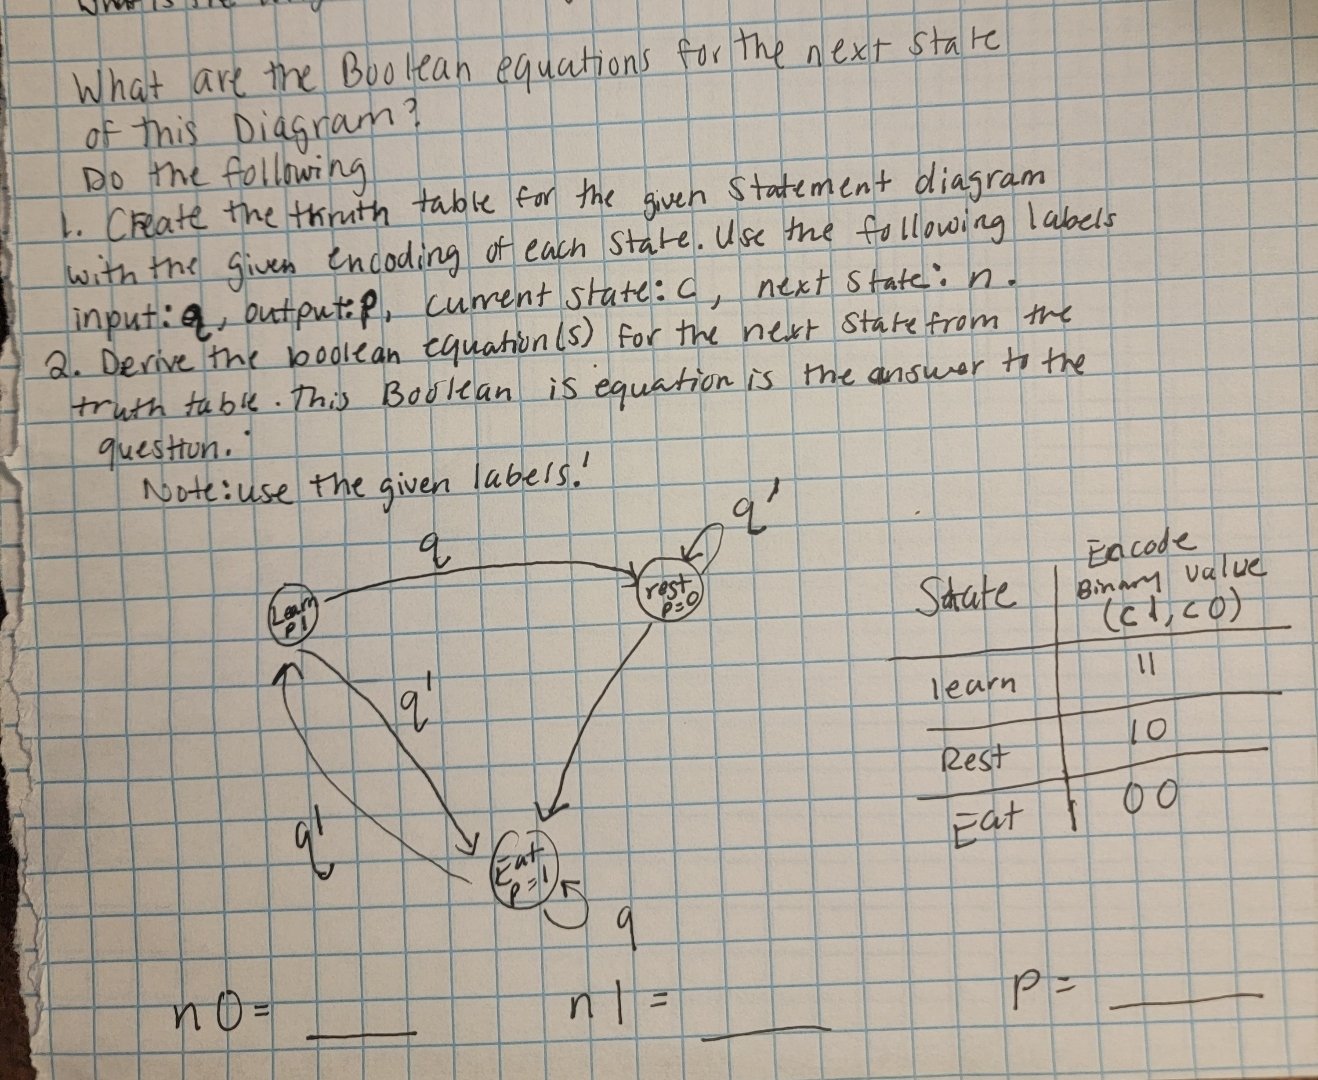 What are the Boolean equations for the next state
of this Diagram?
Do the following
1. Create the thruth table for the given Statement diagram
with the given encoding of each state. Use the following labels
input: q, output: p, current state: c, next state: n.
2. Derive the boolean equation(s) for the next state from the
truth table. This Boolean is equation is the answer to the
question.
Note: use the given labels!
q
q'
Learn
P1
rest
p=0
q'
q'
Eat
p=1
q
State
Encode
Binary value
(c1, c0)
learn
11
Rest
10
Eat
00
n0=
n1=
p=